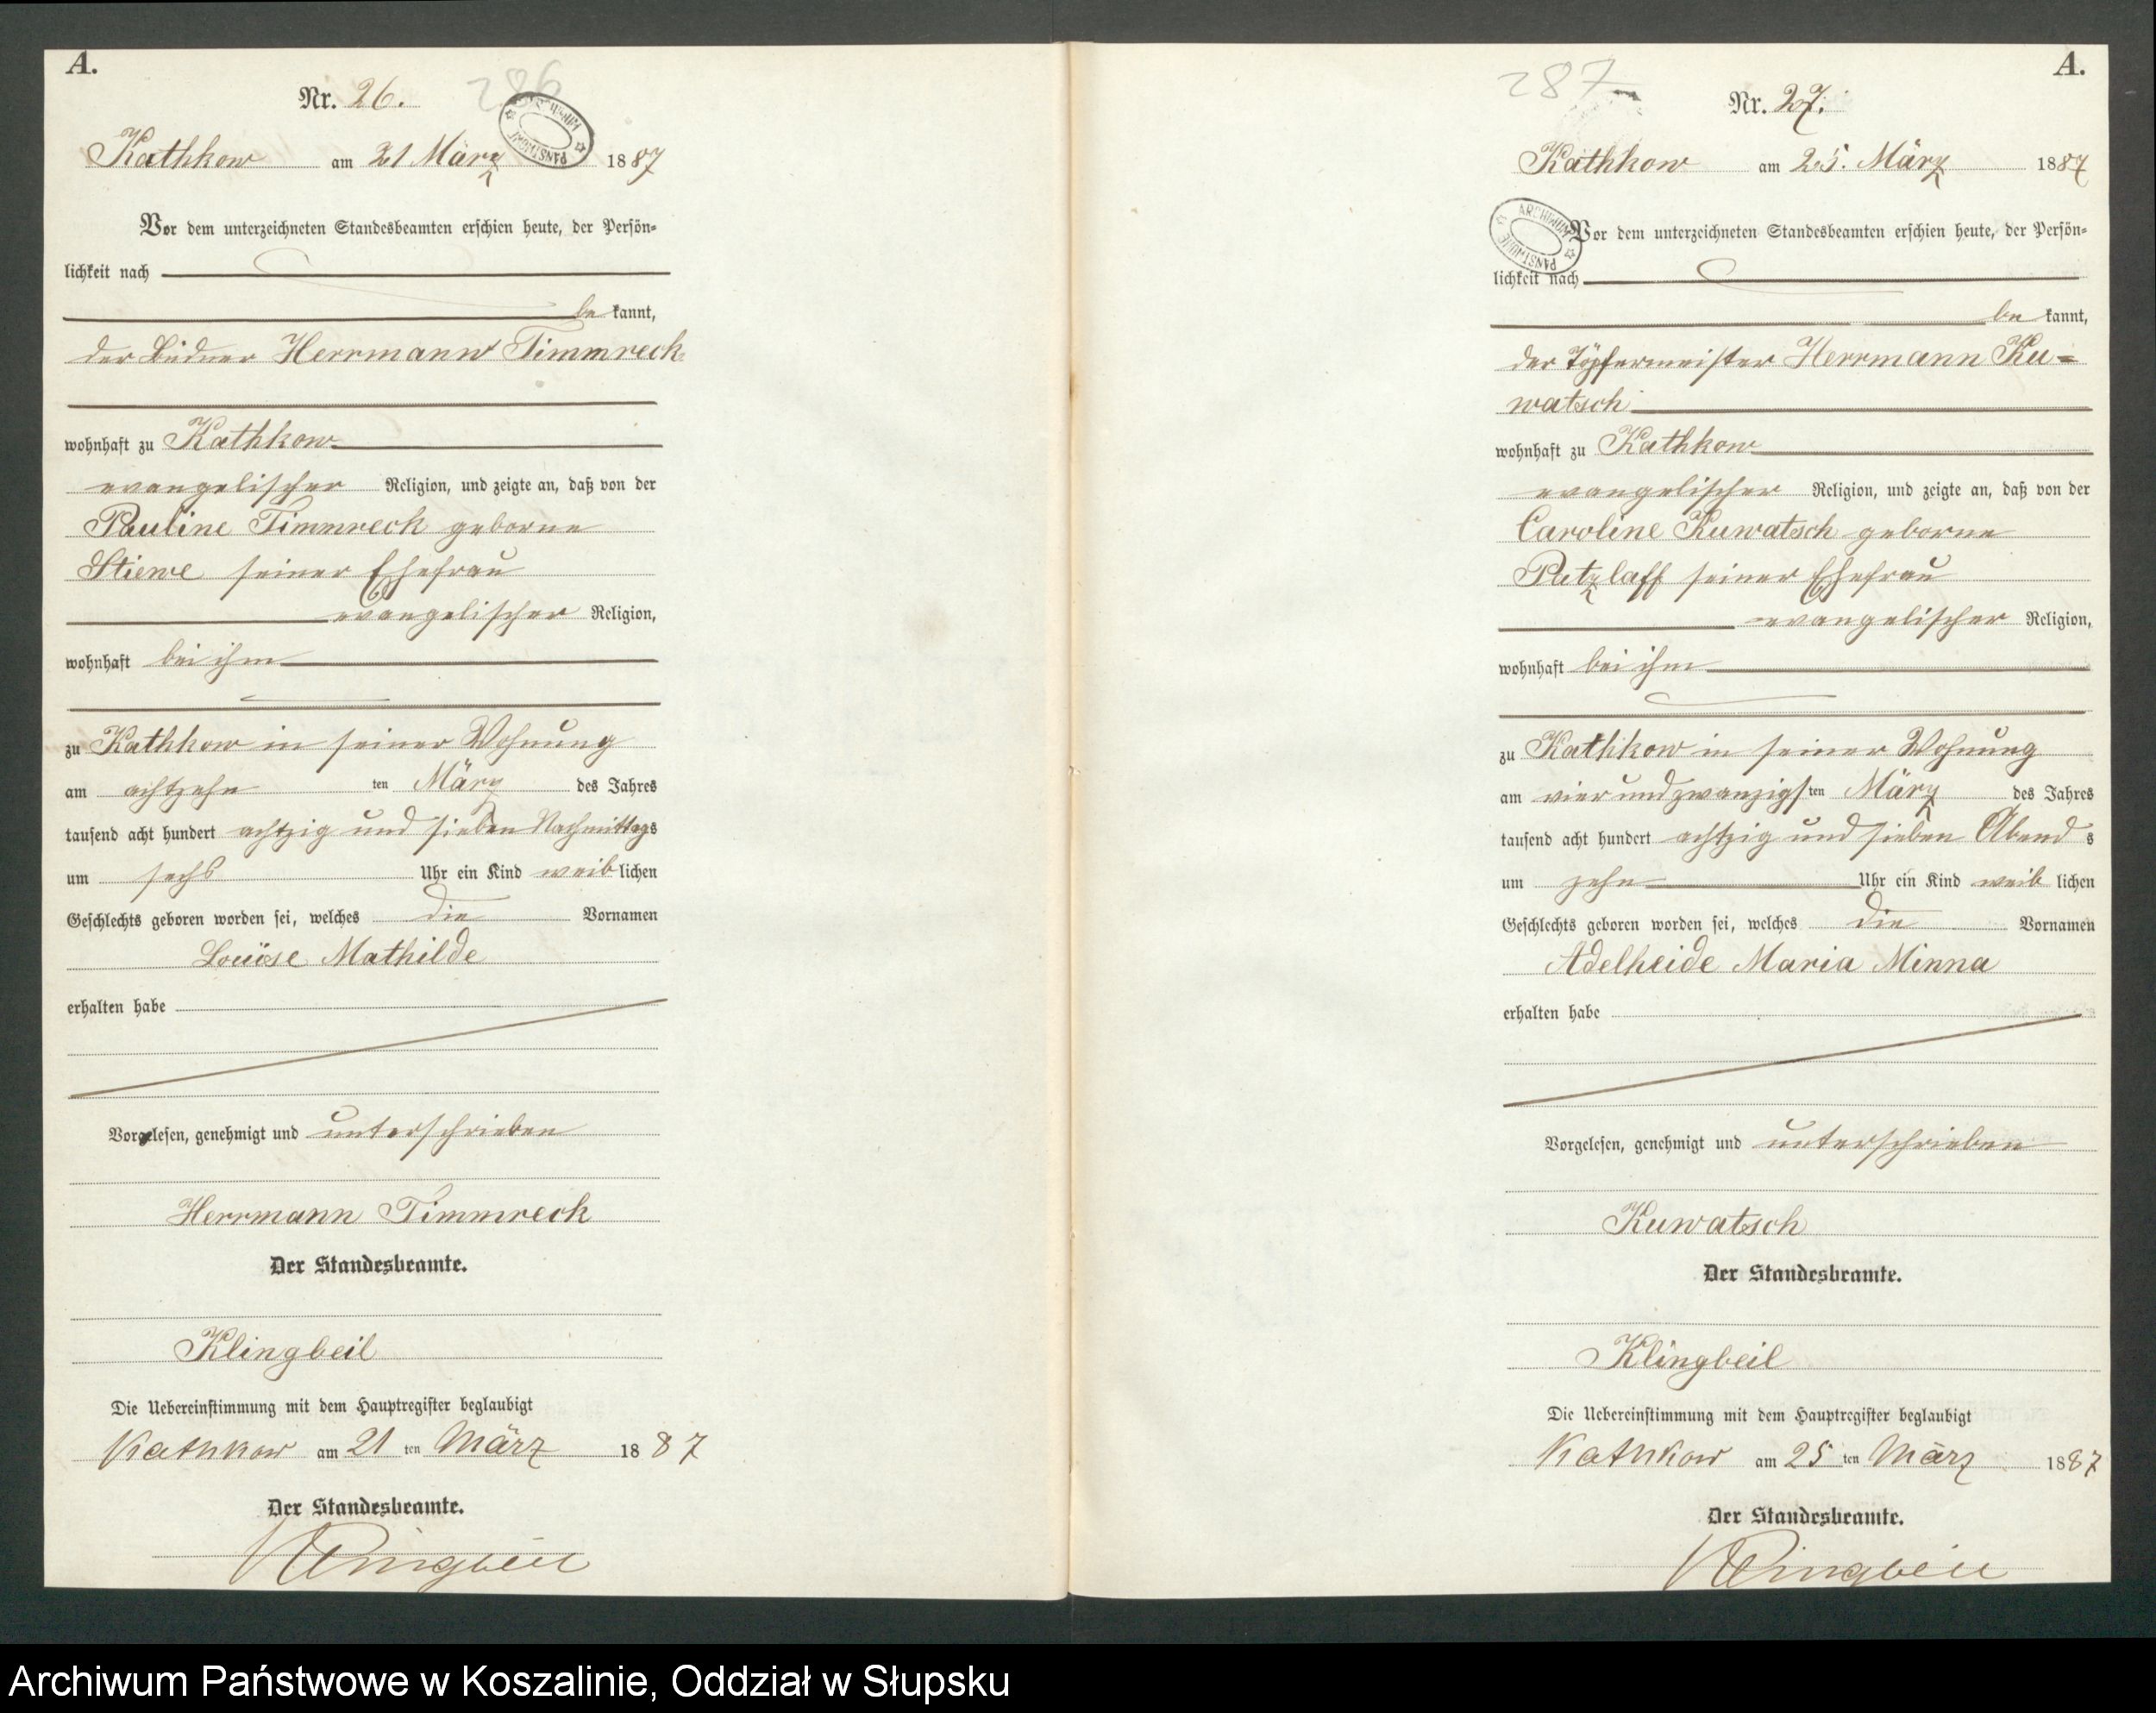 A.
Nr. 26.
286
Kathkow am 21 März 1887
Vor dem unterzeichneten Standesbeamten erschien heute, der Persön-
lichkeit nach
bekannt,
der Büdner Herrmann Timmreck
wohnhaft zu Kathkow
evangelischer Religion, und zeigte an, daß von der
Pauline Timmreck geborne
Stiewe seiner Ehefrau
evangelischer Religion,
wohnhaft bei ihm
zu Kathkow in seiner Wohnung
am achtzehnten März des Jahres
tausend acht hundert achtzig und sieben Nachmittags
um sechs Uhr ein Kind weiblichen
Geschlechts geboren worden sei, welches die Vornamen
Louise Mathilde
erhalten habe
Vorgelesen, genehmigt und unterschrieben
Herrmann Timmreck
Der Standesbeamte.
Klingbeil
Die Uebereinstimmung mit dem Hauptregister beglaubigt
Kathkow am 21ten März 1887
Der Standesbeamte.
Klingbeil
A.
287
Nr. 27.
Kathkow am 25. März 1887
ARCHIWUM PAŃSTWOWE
Vor dem unterzeichneten Standesbeamten erschien heute, der Persön-
lichkeit nach
bekannt,
der Töpfermeister Herrmann Ku-
watsch
wohnhaft zu Kathkow
evangelischer Religion, und zeigte an, daß von der
Caroline Kuwatsch geborne
Putzlaff seiner Ehefrau
evangelischer Religion,
wohnhaft bei ihm
zu Kathkow in seiner Wohnung
am vier und zwanzigsten März des Jahres
tausend acht hundert achtzig und sieben Abends
um zehn Uhr ein Kind weiblichen
Geschlechts geboren worden sei, welches die Vornamen
Adelheide Maria Minna
erhalten habe
Vorgelesen, genehmigt und unterschrieben
Kuwatsch
Der Standesbeamte.
Klingbeil
Die Uebereinstimmung mit dem Hauptregister beglaubigt
Kathkow am 25ten März 1887
Der Standesbeamte.
Klingbeil
Archiwum Państwowe w Koszalinie, Oddział w Słupsku